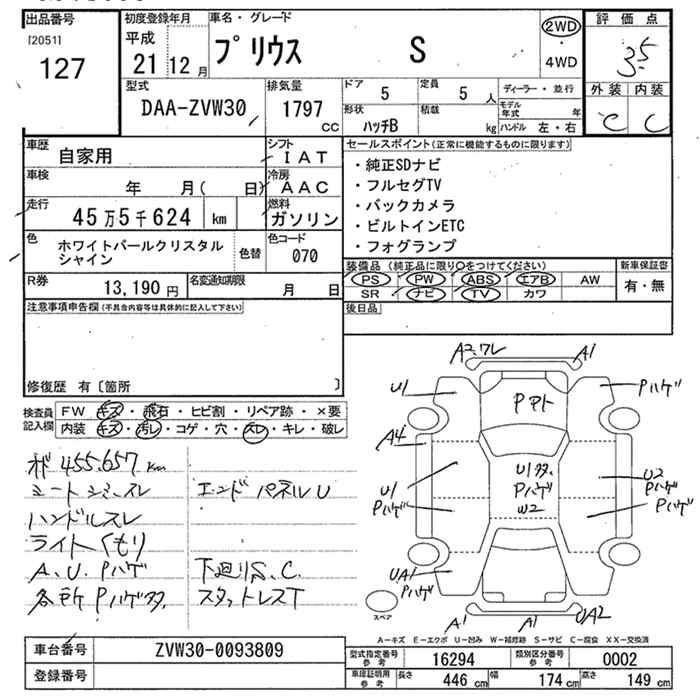 出品番号
[2051]
127
初度登録年月
平成
21 12 月
車名・グレード
プリウス S
2WD
・
4WD
評価点
3.5
外装 内装
C C
型式
DAA-ZVW30
排気量
1797
CC
ドア 5
定員 5 人
形状
ハッチB
積載
kg
ディーラー・並行
モデル年式 年
ハンドル 左・右
車歴
自家用
シフト
IAT
車検
年 月( 日)
冷房
AAC
走行
45万5千624 km
燃料
ガソリン
色
ホワイトパールクリスタル
シャイン
色替
色コード
070
R券
13,190 円
名変通知期限
月 日
セールスポイント(正常に機能するものに限ります)
・純正SDナビ
・フルセグTV
・バックカメラ
・ビルトインETC
・フォグランプ
装備品 (純正品に限り○をつけてください)
PS PW ABS エアB AW
SR ナビ TV カワ
新車保証書
有・無
後日品
注意事項申告欄(不具合内容等は具体的に記入して下さい)
修復歴 有〔箇所 〕
検査員
記入欄
FW キズ・飛石・ヒビ割・リペア跡・×要
内装 キズ・汚レ・コゲ・穴・スレ・キレ・破レ
455.657 km
シートシミ、スレ
ハンドルスレ
ライトくもり
A、U、Pハゲ
各所Pハゲ多
エンドパネルU
下廻りS、C、
スタットレスT
A2,ワレ
A1
U1
Pハゲ
A4
U1
Pハゲ
U1多、
Pハゲ
W2
U2
Pハゲ
Pハゲ
UA1
Pハゲ
A1
A1
UA2
スペア
A－キズ E－エクボ U－凹み W－補修跡 S－サビ C－腐食 XX－交換済
車台番号
ZVW30-0093809
登録番号
型式指定番号
参考
16294
類別区分番号
参考
0002
車庫証明用
参考
長さ 446 cm
幅 174 cm
高さ 149 cm